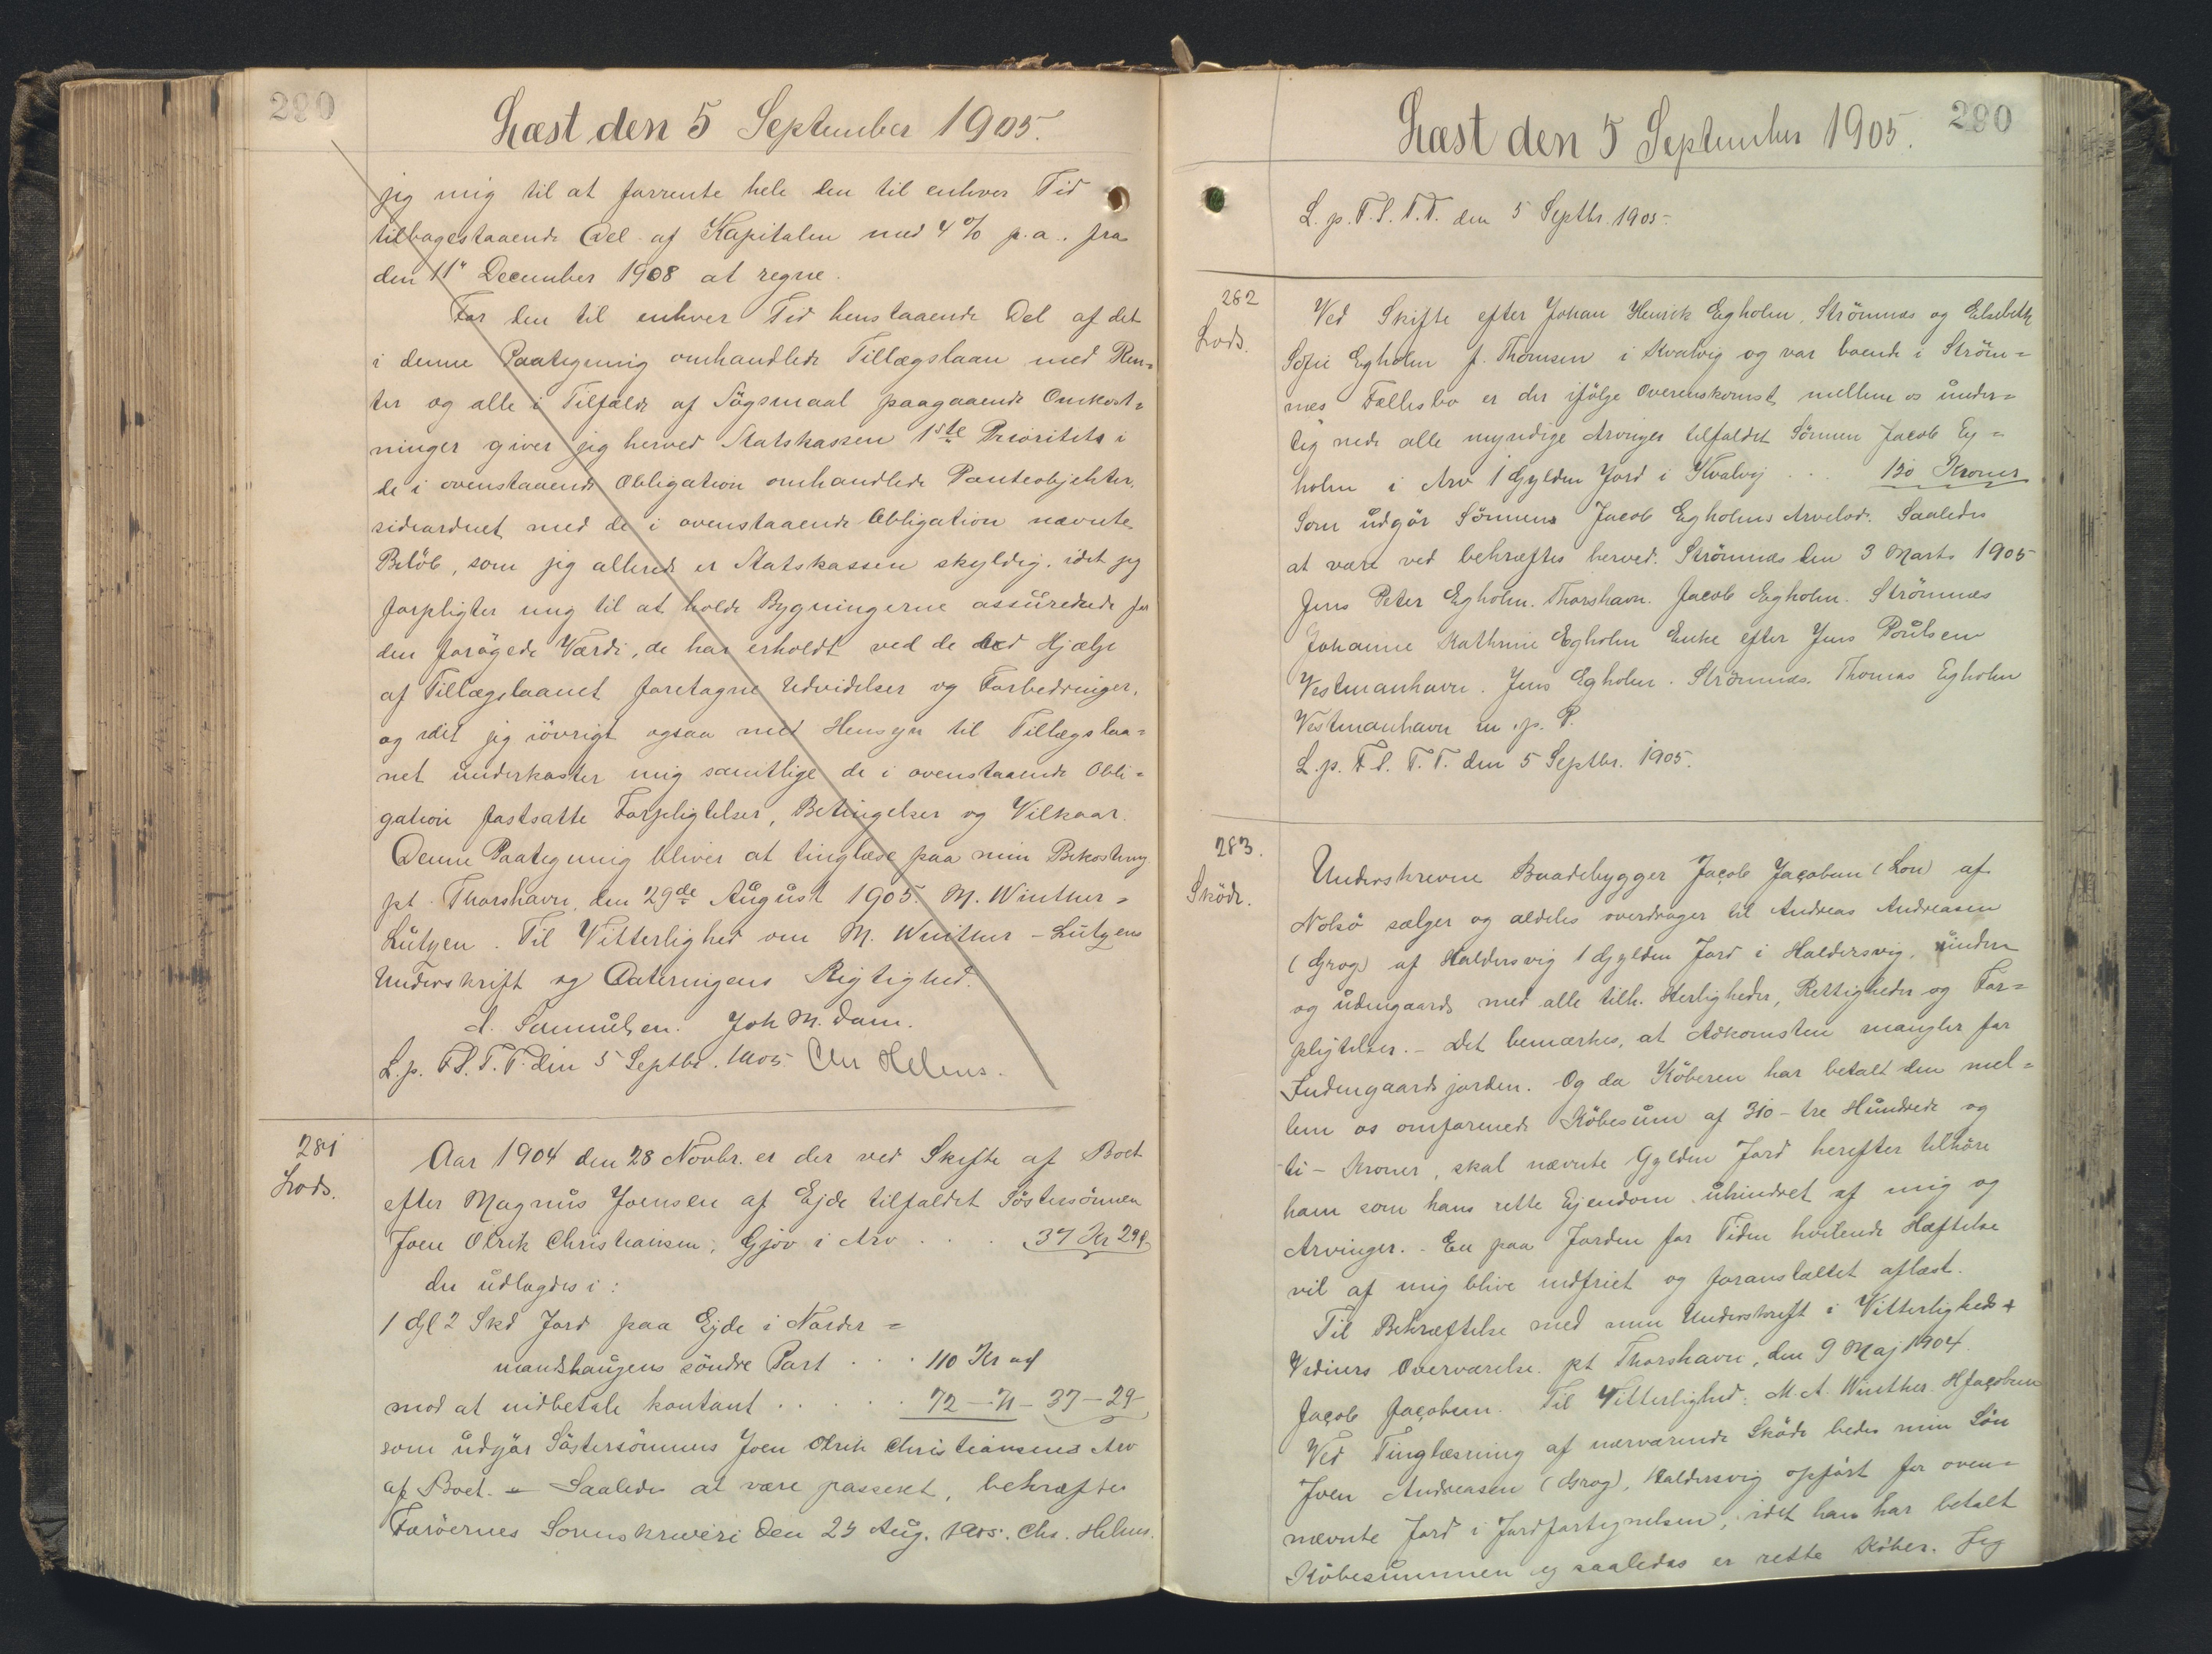 290
Læst den 5 September 1905.
jeg mig til at forrente hele den til enhver Tid
tilbagestaaende Del af Kapitalen med 4 % p.a. fra
den 11" December 1908 at regne.
For den til enhver Tid henstaaende Del af det
i denne Paategning omhandlede Tillægslaan med Ren=
ter og alle i Tilfælde af Søgsmaal paagaaende Omkost=
ninger giver jeg herved Statskassen 1ste Prioritets i
de i ovenstaaende Obligation omhandlede Panteobjekter,
sideordnet med de i ovenstaaende Obligation nævnte
Beløb, som jeg allerede er Statskassen skyldig, idet jeg
forpligter mig til at holde Bygningerne assurerede for
den forøgede Værdi, de har erholdt ved de ved Hjælp
af Tillægslaanet foretagne Udvidelser og Forbedringer,
og idet jeg iøvrigt ogsaa med Hensyn til Tillægslaa=
net underkaster mig samtlige de i ovenstaaende Obli=
gation fastsatte Forpligtelser, Betingelser og Vilkaar.
Denne Paategning bliver at tinglæse paa min Bekostning.
pt. Thorshavn, den 29de August 1905. M. Winther=
Lützen. Til Vitterlighed om M. Winther-Lützens
Underskrift og Dateringens Rigtighed.
d. Samuelsen. Joh M. Dam.
L. p. F.S.T.T. den 5 Septbr. 1905. Chr Helms.
281
Lods.
Aar 1904 den 28 Novbr. er der ved Skifte af Boet
efter Magnus Joensen af Ejde tilfaldet Søstersønnen
Joen Olrik Christiansen, Gjov i Arv . . . 37 Kr 29 Ø
der udlagdes i:
1 Gl 2 Skd Jord paa Ejde i Norder=
mandshaugens søndre Part . . . 110 Kr
mod at indbetale kontant . . . . . 72 - 71 - 37 - 29
som udgør Søstersønnens Joen Olrik Christiansens Arv
af Boet. - Saaledes at være passeret, bekræftes
Færøernes Sorenskriveri den 29 Aug. 1905. Chr. Helms.
290
Læst den 5 September 1905.
L. p. F.S.T.T. den 5 Septbr. 1905.
282
Lods.
Ved Skifte efter Johan Henrik Egholm, Strömnæs og Elsebeth
Sofie Egholm f. Thomsen i Kvalvig og var boende i Ström=
næs Fællesbo er der ifølge Overenskomst mellem os under=
tegnede alle myndige Arvinger tilfaldet Sønnen Jacob Eg=
holm i Arv 1 Gylden Jord i Kvalvig . . 150 Kroner
Som udgør Sønnens Jacob Egholms Arvelod. Saaledes
at være ved bekræftes herved. Strömnæs den 3 Marts 1905
Jens Peter Egholm. Thorshavn. Jacob Egholm. Strömnæs
Johanne Kathrine Egholm Enke efter Jens Poulsen
Vestmanhavn. Jens Egholm. Strömnæs. Thomas Egholm
Vestmanhavn m. p. P.
L. p. F.S.T.T. den 5 Septbr. 1905.
283.
Sköde.
Underskrevne Baadebygger Jacob Jacobsen (Lon) af
Nolsö sælger og aldeles overdrager til Andreas Andreasen
(Grog) af Haldersvig 1 Gylden Jord i Haldersvig, inden
og udengaards med alle tilh. Herligheder, Rettigheder og For=
pligtelser. - Det bemærkes, at Adkomsten mangler for
Indengaardsjorden. Og da Köberen har betalt den mel=
lem os omforenede Köbesum af 310 - tre Hundrede og
ti - Kroner, skal nævnte Gylden Jord herefter tilhøre
ham som hans rette Ejendom uhindret af mig og
Arvinger. - En paa Jorden for Tiden hvilende Hæftelse
vil af mig blive indfriet og foranstaltet aflæst.
Til Bekræftelse med min Underskrift i Vitterligheds
Vidners Overværelse. pt Thorshavn, den 9 Maj 1904.
Jacob Jacobsen. Til Vitterlighed: M. A. Winther. H Jacobsen
Ved Tinglæsning af nærværende Sköde bedes min Søn
Joen Andreasen (Grog), Haldersvig opfört for oven=
nævnte Jord i Jordfortegnelsen, idet han har betalt
Köbesummen og saaledes er rette Køber. Jeg